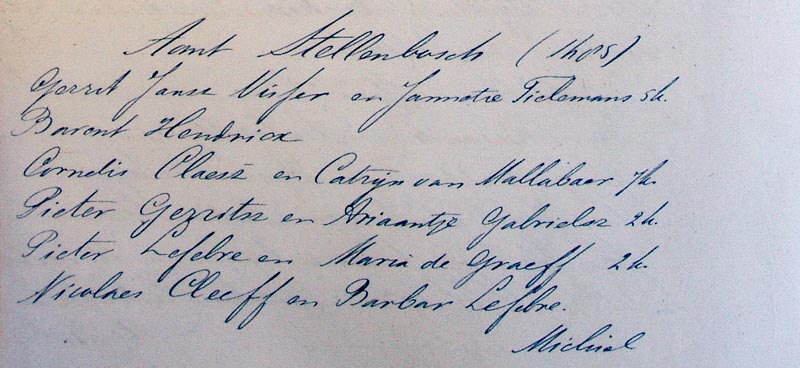 Aant Stellenbosch (1685)
Gerrit Jansz Visser en Jannetie Tielemans 5k.
Barent Hendricx
Cornelis Claesz en Catrijn van Mallabaer 7k.
Pieter Gerritsz en Ariaantje Gabrielsz 2k.
Pieter Lefebre en Maria de Graeff 2k.
Nicolaes Cleeff en Barbar Lefebre.
Michiel